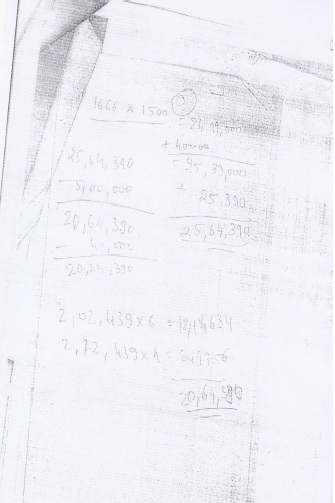 1666 x 1500
24,99,000
+ 40000
25,39,000
+ 25,390
25,64,390
25,64,390
- 5,00,000
20,64,390
- 40,000
20,24,390
2,02,439x6 = 12,14,634
2,12,439x4 =
20,64,390